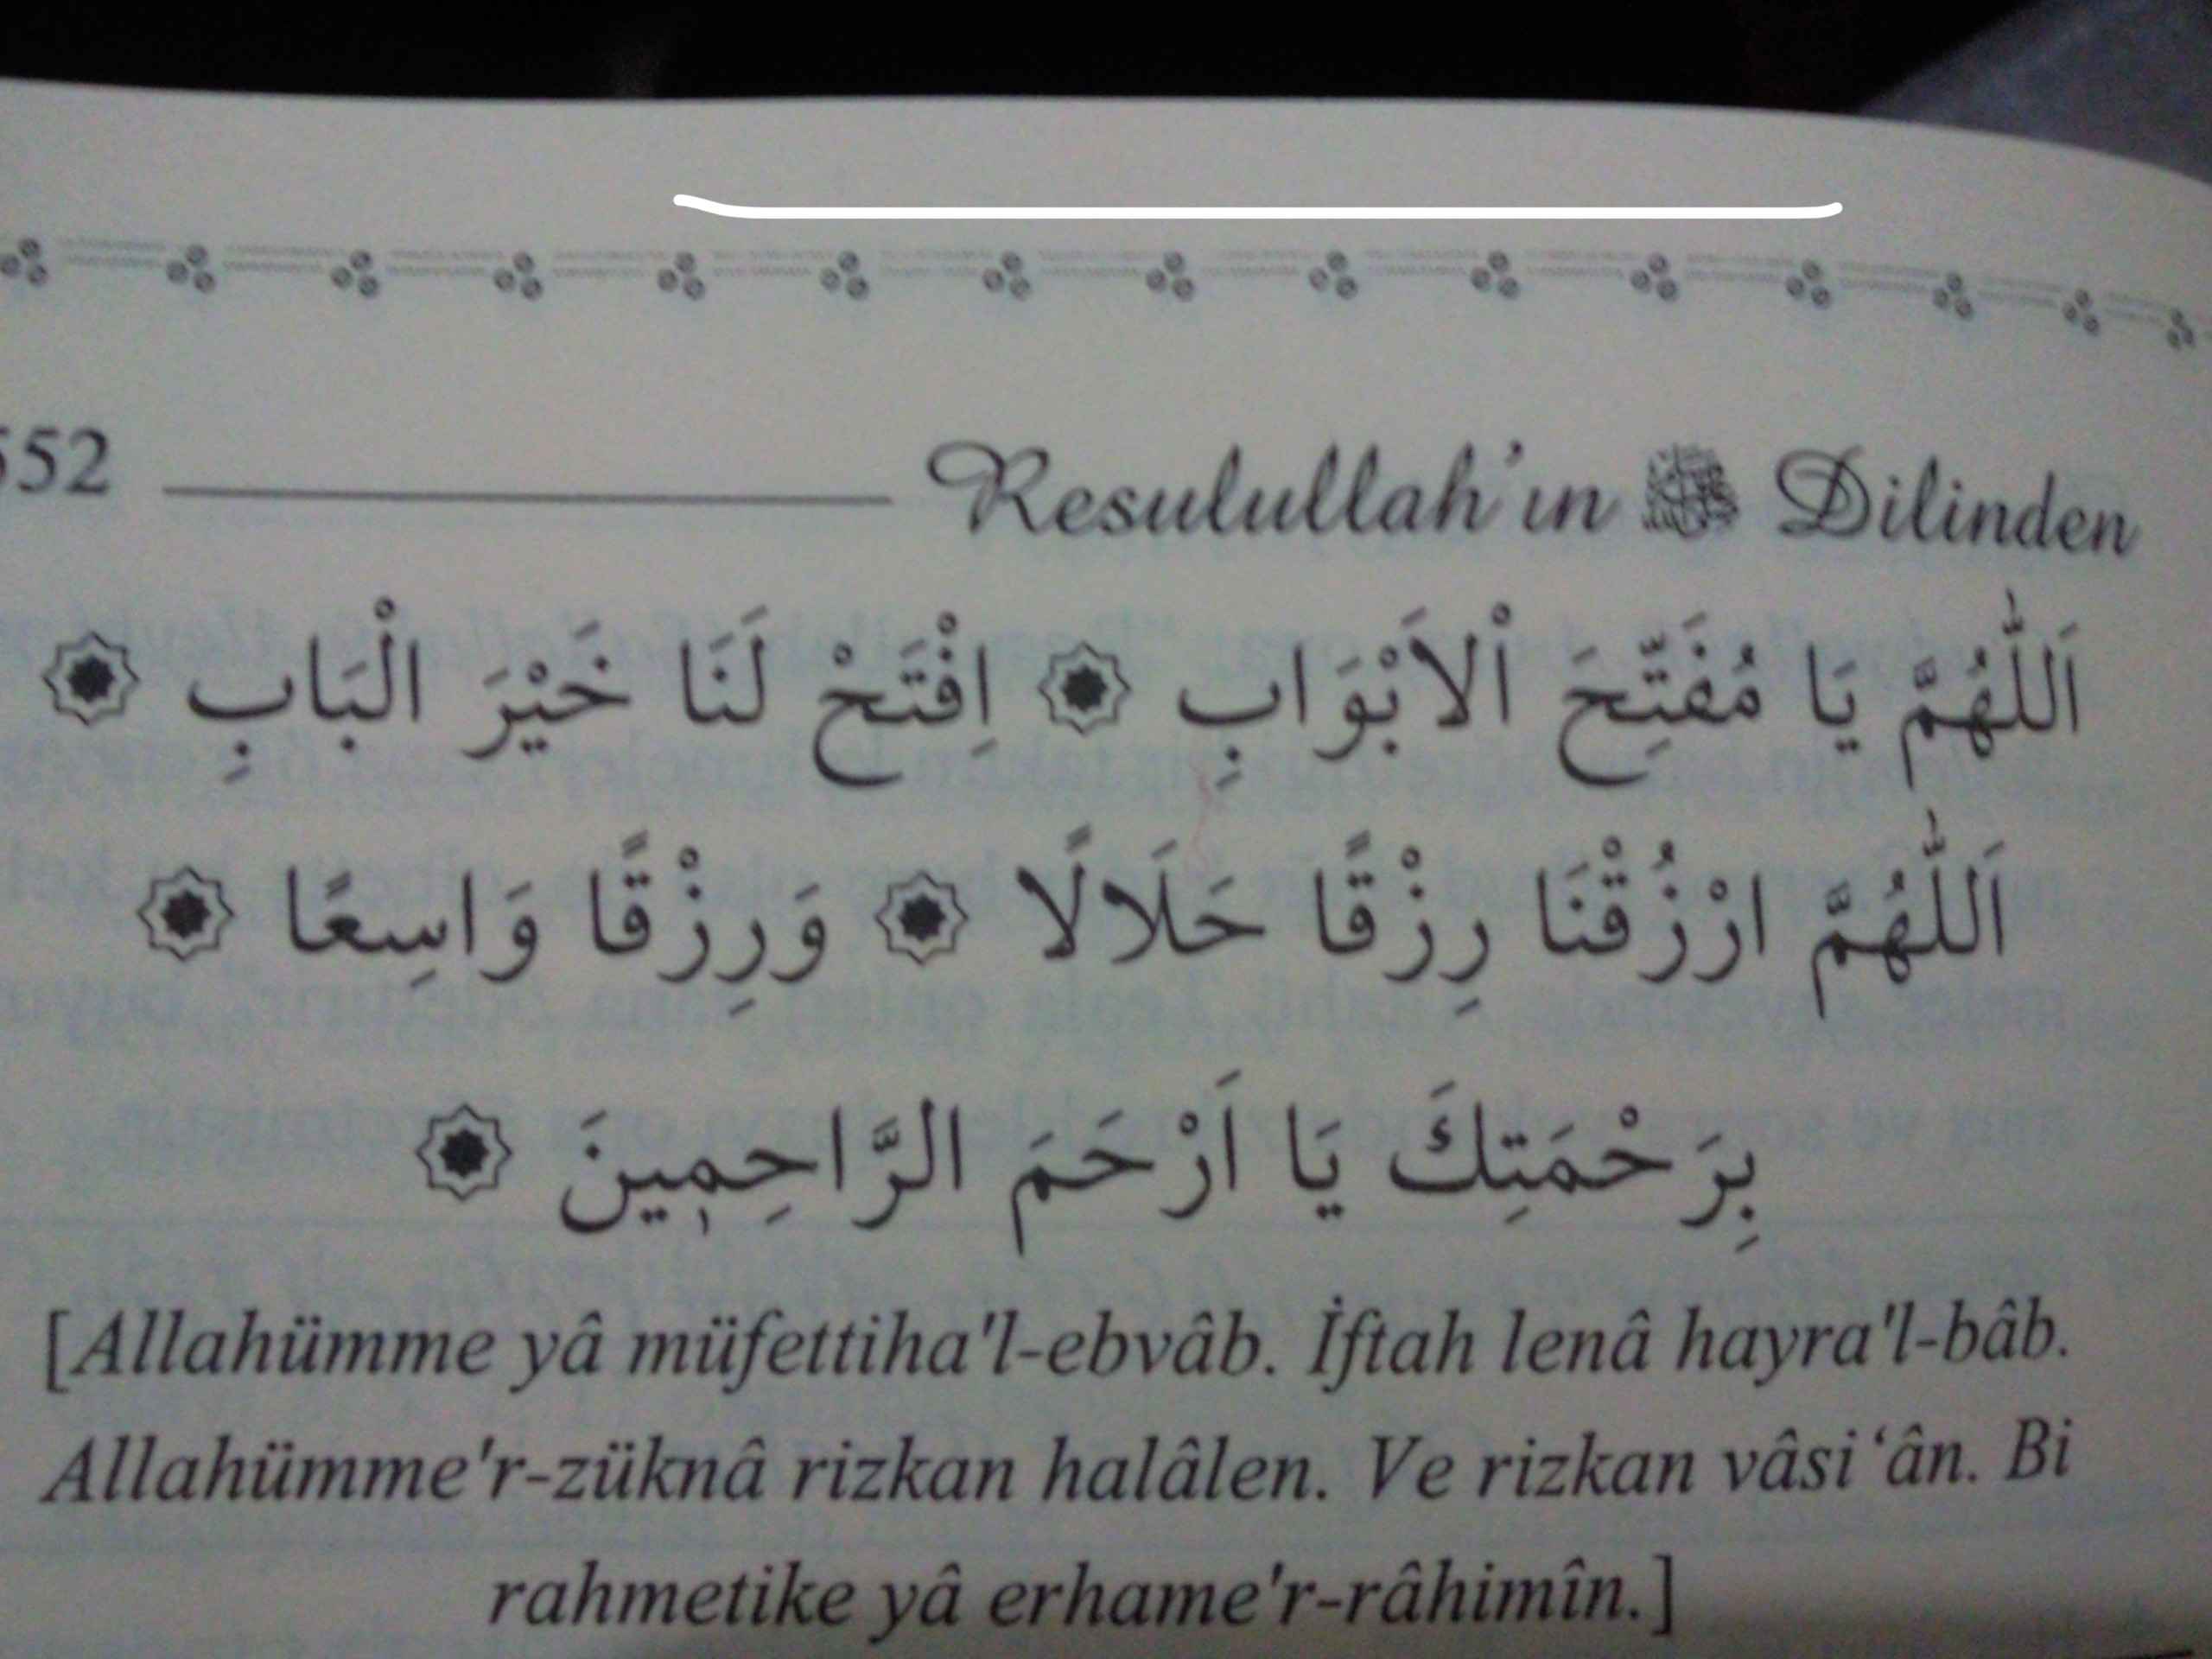 552 Resulullah'ın ﷺ Dilinden
اَللّٰهُمَّ يَا مُفَتِّحَ اْلاَبْوَابِ ۞ اِفْتَحْ لَنَا خَيْرَ الْبَابِ ۞
اَللّٰهُمَّ ارْزُقْنَا رِزْقًا حَلَالًا ۞ وَرِزْقًا وَاسِعًا ۞
بِرَحْمَتِكَ يَا اَرْحَمَ الرَّاحِمٖينَ ۞
[Allahümme yâ müfettiha'l-ebvâb. İftah lenâ hayra'l-bâb.
Allahümme'r-züknâ rizkan halâlen. Ve rizkan vâsi‘ân. Bi
rahmetike yâ erhame'r-râhimîn.]